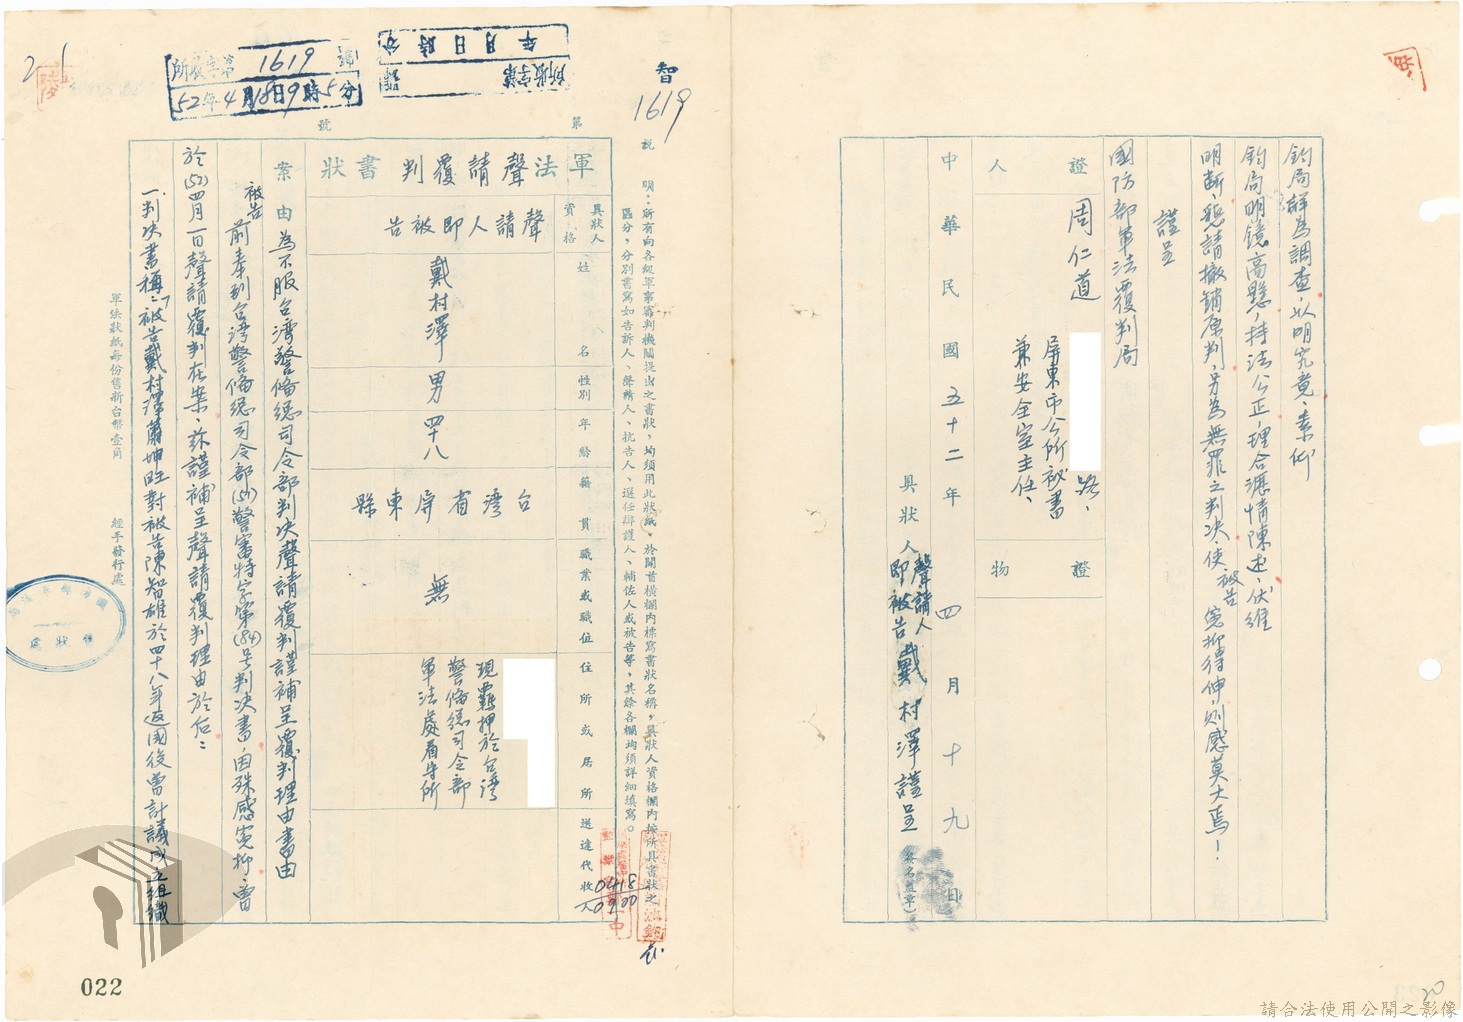 鈞局鮮為調查，以明究竟，素仰
鈞局明鏡高懸，持法公正，理合瀝情陳述，伏維
明断，懇請撤銷原判，另為無罪之判决，使被告寃抑得伸，則感莫大焉！
謹呈
國防部軍法覆判局
證人
周仁道
路、
屏東市公所秘書
兼安全室主任、
證物
中華民國五十二年四月十九日
具狀人 聲請人
即被告 戴村澤謹呈
（簽名蓋章）
智
1619
說明：所有向各級軍事審判機關提出之書狀，均須用此狀紙。於開首橫欄內標寫書狀名稱，具狀人資格欄內按所具書狀之
區分，分別書寫如告訴人、聲請人、抗告人、選任辯護人、輔佐人或被告等，其餘各欄均須詳細填寫。
年月日時分
所收字第號
所收字第1619號
52年4月18日9時5分
第號
軍法聲請覆判書狀
具狀人資格
聲請人即被告
姓名
戴村澤
性別
男
年齡
四十八
籍貫
台灣省屏東縣
職業或職位
無
住所或居所
現羈押於台灣
警備總司令部
軍法處看守所
送達代收人
0418
0900
案由
為不服台灣警備總司令部判决聲請覆判謹補呈覆判理由書由
被告前奉到台灣警備總司令部(51)警審特字第(84)号判决書，因殊感寃抑，曾
於(52)四月一日聲請覆判在案，茲謹補呈聲請覆判理由於后：
一、判决書稱：「被告戴村澤蕭坤旺對被告陳智雄於四十八年返國後曾計議成立組織
軍法狀紙每份售新台幣壹角
經手發行處
022
20
請合法使用公開之影像